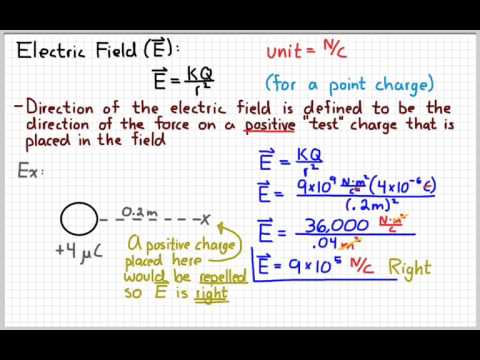 Electric Field (E⃗):
unit = N/C
E⃗ = KQ/r²
(for a point charge)
-Direction of the electric field is defined to be the
direction of the force on a positive "test" charge that is
placed in the field
Ex:
0.2m
x
+4 μC
A positive charge
placed here
would be repelled
so E⃗ is right
E⃗ = KQ/r²
E⃗ = 9×10⁹ N·m²/C² (4×10⁻⁶ C)/(.2m)²
E⃗ = 36,000 N·m²/C/.04 m²
E⃗ = 9×10⁵ N/C Right